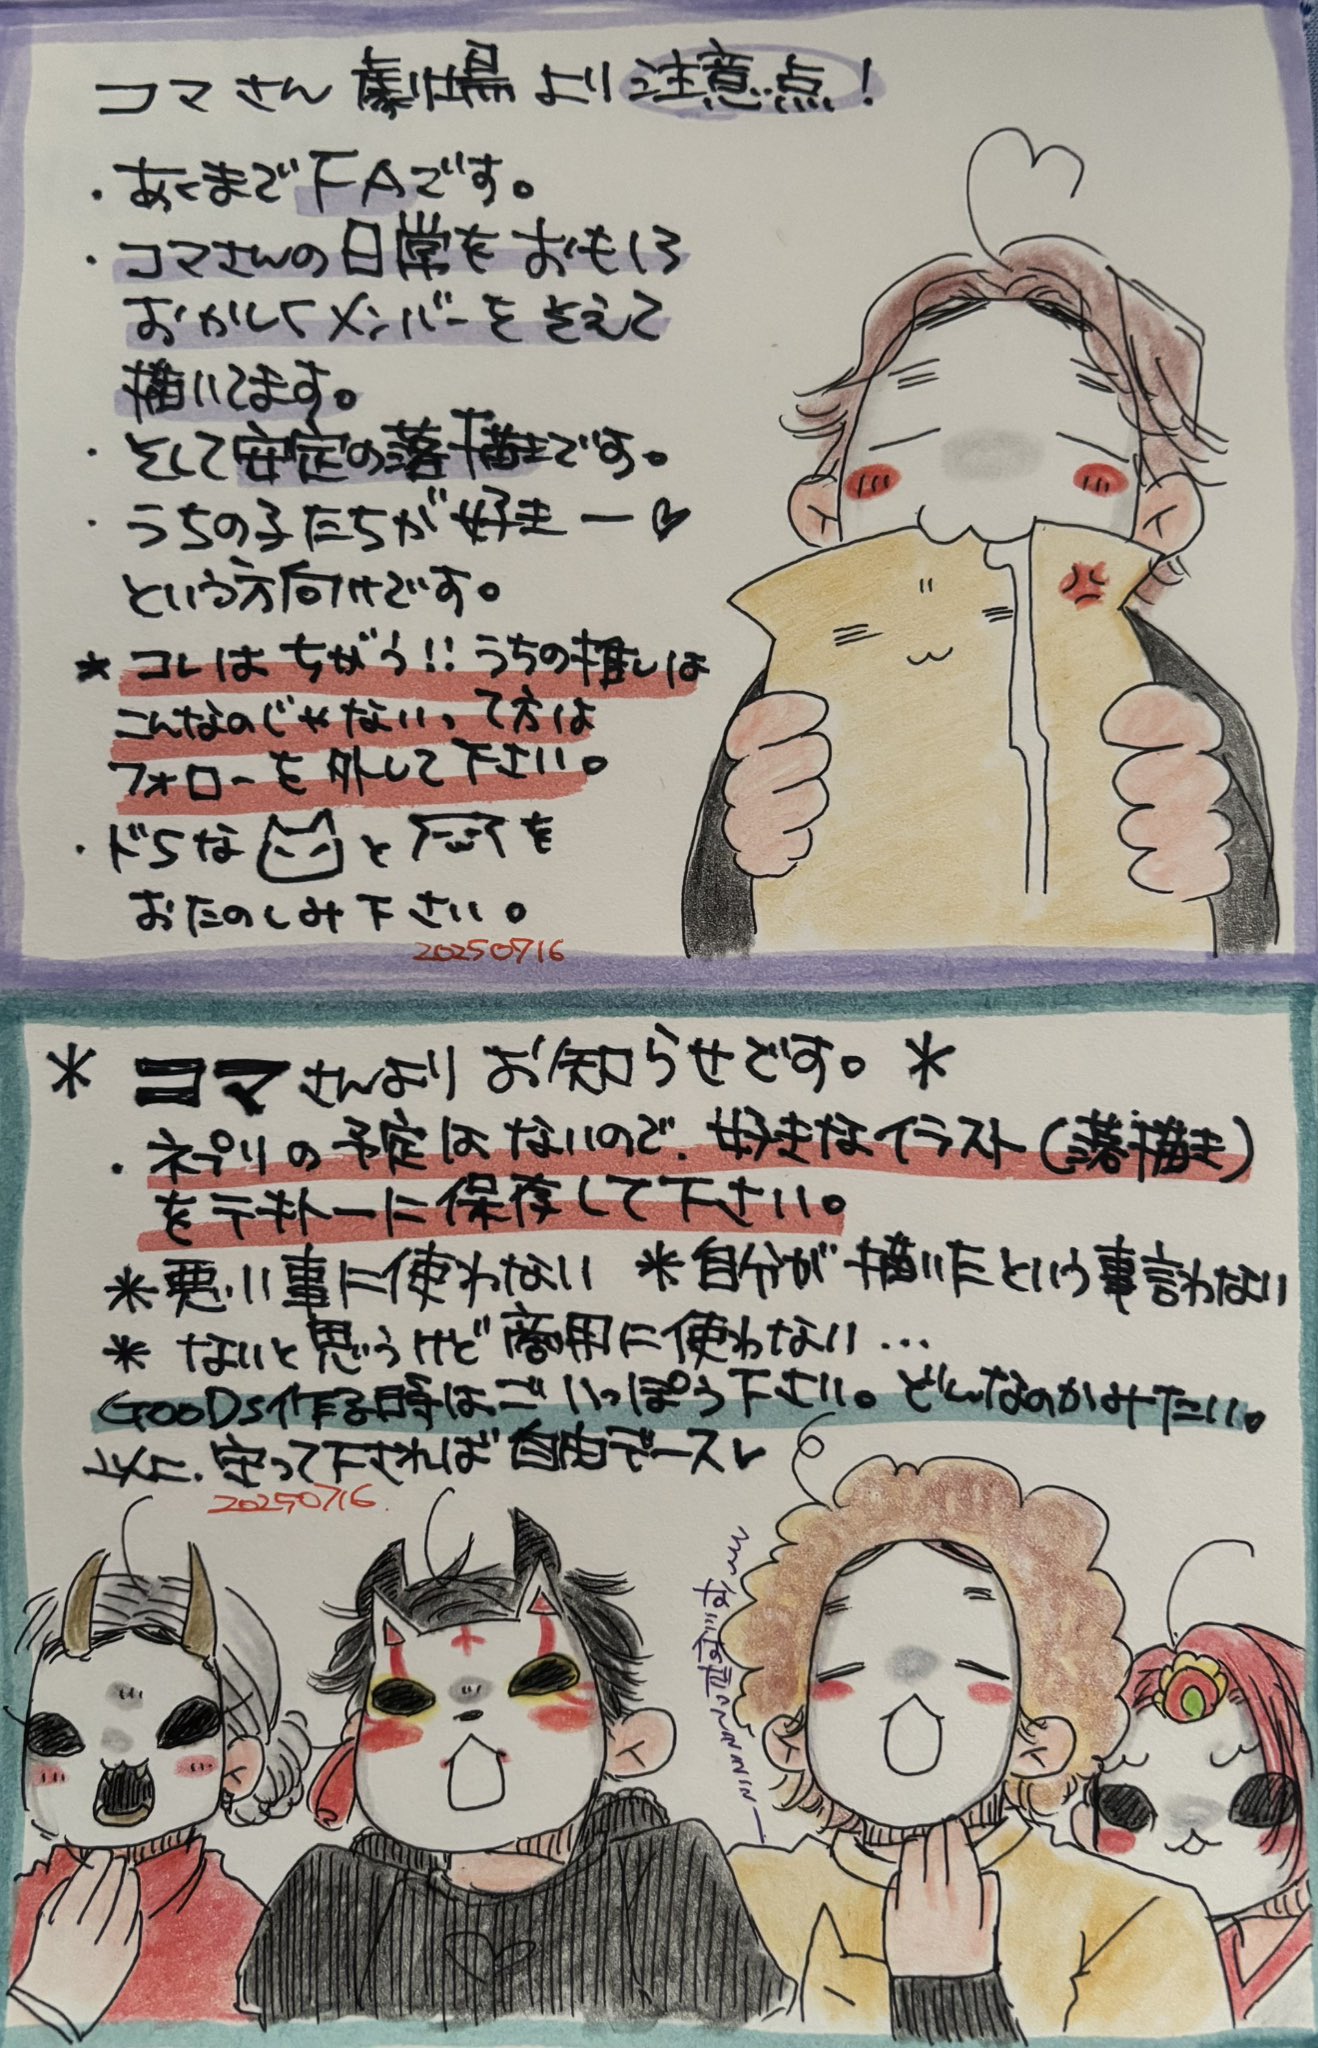 コマさん劇場より注意点!
・あくまでFAです。
・コマさんの日常をおもしろ
おかしくメンバーをそえて
描いてます。
・そして安定の落描きです。
・うちの子たちが好きー♡
という方向けです。
*コレはちがう!!うちの推しは
こんなのじゃないって方は
フォローを外して下さい。
・ドSな と を
おたのしみ下さい。
20250716
*コマさんよりお知らせです。*
・ネプリの予定はないので、好きなイラスト(落描き)
をテキトーに保存して下さい。
*悪い事に使わない *自分が描いたという事言わない
*ないと思うけど商用に使わない…
GOODs作る時はごいっぽう下さい。どんなのかみたい。
以上、守って下されば自由デース
20250716